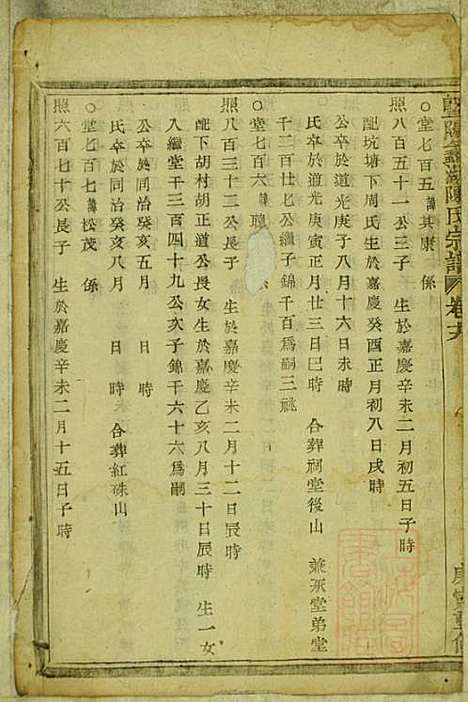 暨陽 陳氏宗譜 卷
○堂七百五 諱其康 係
照八百五十一公三子 生於嘉慶辛未二月初五日子時
配坑塘下周氏生於嘉慶癸酉正月初八日戌時
公卒於道光庚子八月十六日未時
氏卒於道光庚寅正月廿三日巳時 合葬祠堂後山 兼祧堂弟堂
千二百廿七公繼子錦千百為嗣三祧
○堂七百六 諱聰 係
照八百三十二公長子 生於嘉慶辛未二月十二日辰時
配下胡村胡正道公長女生於嘉慶乙亥八月三十日辰時 生一女
入繼堂千三百四十九公次子錦千六十六為嗣
公卒於同治癸亥五月 日 時
氏卒於同治癸亥八月 日 時 合葬紅硃山
○堂七百七 諱松茂 係
照六百七十公長子 生於嘉慶辛未二月十五日子時